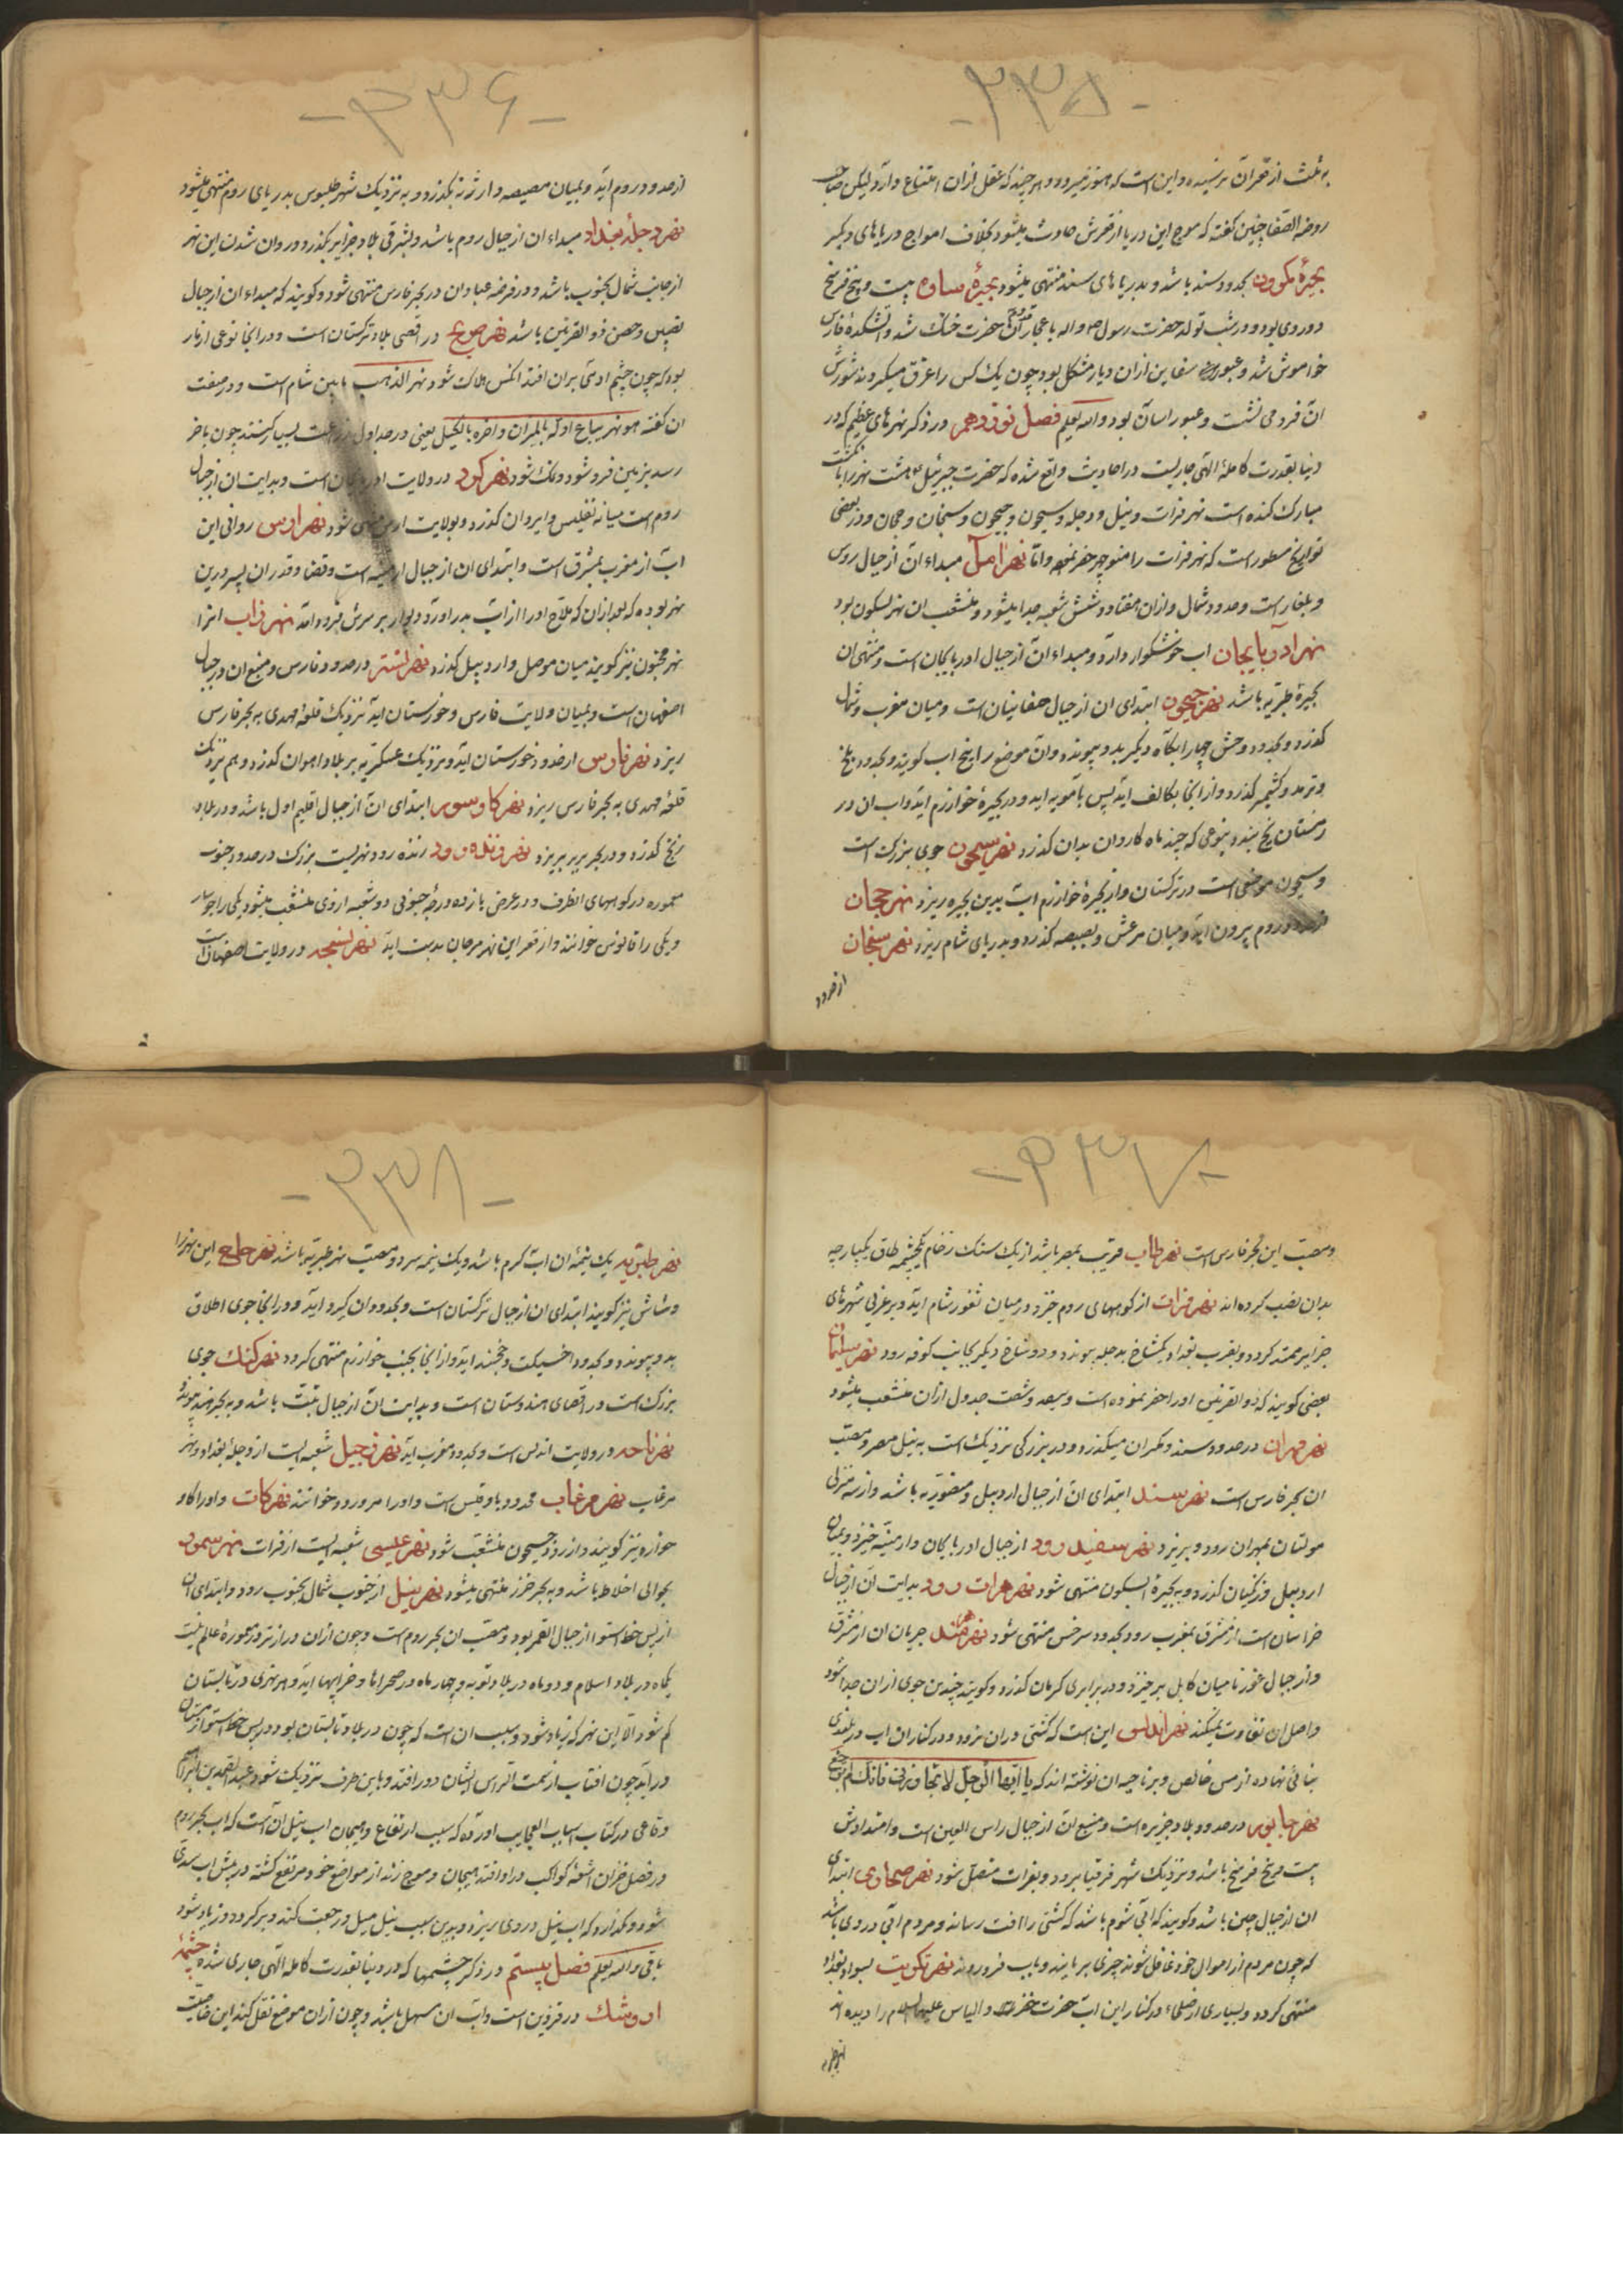 -۲۳۵-
به ثلث از قعر آن نرسیده و این است که هنوز میرود و هر چند که عقل ازان امتناع دارد لیکن صاحب
روضه الصفا چنین گفته که موج این دریا از قعرش حادث میشود بخلاف امواج دریاهای دیگر
بحیرهٔ بحدود سند باشد و بدریاهای سند منتهی میشود بحیرهٔ ساوه بیست و پنج فرسخ
دور وی بود و در شب تولد حضرت رسول ص واله باعجاز آن حضرت خشک شد و آتشکدهٔ فارس
خاموش شد و عبور سفاین ازان دیار مشکل بود چون یک کس را غرق میکردند شورش
آن فرو می نشست و عبور آسان بود والله یعلم فصل نوزدهم در ذکر نهرهای عظیم که در
دنیا بقدرت کاملهٔ الهی جاریست در احادیث واقع شده که حضرت جبرئیل ع هشت نهر را با نکشت
مبارک کنده است نهر فرات و نیل و دجله و سیحون و جیحون و سیحان و جحان و در بعضی
تواریخ مسطور است که نهر فرات را منوچهر حفر نموده و اما نهر آمل مبداء آن از جبال روس
و بلغار است و حدود شمال و ازان هفتاد و شش شعبه جدا میشود و منشعب ان نهر بسکون بود
نهر آذربایجان اب خوشگوار دارد و مبداء آن از جبال ادربایجان است و منتهی ان
بحیرهٔ طبریه باشد نهر جیحون ابتدای ان از جبال صغانیان است و میان مغرب و شمال
گذرد و بحدود وخش چهار ابگاه دیگر بدو پیوندد و آن موضع را پنج اب گویند و بحدود بلخ
و ترمد و گذرد و از آنجا بکالف آید پس بآمویه اید و در بحیرهٔ خوارزم آید و اب ان در
زمستان یخ بندد بنوعی که چند ماه کاروان بدان گذرد نهر سیحون جوی بزرگ است
و سیحون موضعی است در ترکستان و از بحیرهٔ خوارزم اب بدین بحیره ریزد نهر جحان
از حدود روم بیرون آید و میان مرعش و مصیصه گذرد و بدریای شام ریزد نهر سیحان
از حدود
-۲۳۶-
از حدود روم آید و بمیان مصیصه و ارزنه بگذرد و به نزدیک شهر طبلوس بدریای روم منتهی میشود
نهر دجلهٔ بغداد مبداء ان از جبال روم باشد و بشرقی بلاد جزایر بگذرد و روان شدن این نهر
از جانب شمال بجنوب باشد و در فرضه عبادان در بحر فارس منتهی شود و گویند که مبداء ان از جبال
نصیبین و حصن ذوالقرنین باشد نهر در اقصی بلاد ترکستان است و در انجا نوعی از مار
بود که چون چشم ادمی بران افتد انکس هلاک شود نهر الذهب مابین شام است و در صفت
ان گفته هو نهر یباع اوله بالمیزان و اخره بالکیل یعنی در حد اول زراعت بسیار کنند چون باخر
رسد بزمین فرو شود و نمک شود نهر کر در ولایت ادربایجان است و بدایت ان از جبال
روم است میانه تفلیس و ایروان گذرد و بولایت ارس منتهی شود نهر ارس روانی این
اب از مغرب بمشرق است و ابتدای ان از جبال ارمنیه است و قضا و قدر ان پسر و رین
نهر بوده که بعد ازان که ملاح او را از اب بدر اورد دیوار بر سرش فرود امد نهر زاب انرا
نهر مجنون نیز گویند میان موصل و اردبیل گذرد نهر تستر در حدود فارس و منبع ان در جبال
اصفهان است و بمیان ولایت فارس و خوزستان آید نزدیک قلعهٔ مهدی به بحر فارس
ریزد نهر فارس از حدود خوزستان آید و نزدیک عسکریه بر بلاد اهوان گذرد و هم نزدیک
قلعهٔ مهدی به بحر فارس ریزد نهر کاوسور ابتدای ان از جبال اقلیم اول باشد و در بلاد
زنج گذرد و در بحر بربر بریزد نهر زنده رود زنده رود نهریست بزرگ در حدود جنوب
معموره در کوههای انطرف و در عرض یازده درجه جنوبی دو شعبه ازوی منشعب میشود یکی را
و یکی را فانوس خوانند و از قعر این نهر مرجان بدست اید نهر در ولایت اصفهان است
-۲۳۷-
و مصب این بحر فارس است نهر طاب قریب بمصر باشد از یک سنک رخام یکچشمه طاق یکپارچه
بدان نصب کرده اند نهر فرات از کوههای روم خیزد و در میان ثغور شام آید و بر غربی شهرهای
جزایر ممتد کردد و بقرب بغداد یکشاخ بدجله پیوندد و دو شاخ دیگر بجانب کوفه رود نهر سلیمان
بعضی گویند که ذوالقرنین اورا حفر نموده است و سیصد و شصت جدول ازان منشعب میشود
نهر مهران در حدود سند و مکران میگذرد و در بزرکی نزدیک است به نیل مصر و مصب
ان بحر فارس است نهر سند ابتدای ان از جبال اردبیل و منصوریه باشد و از سه منزلی
مولتان بمهران رود و بریزد نهر سفید رود از جبال ادربایجان و ارمنیه خیزد و بمیان
اردبیل و زنگیان گذرد و به بحیرهٔ آبسکون منتهی شود نهر هرات رود بدایت ان از جبال
خراسان است از مشرق بمغرب رود بحدود سرخس منتهی شود نهر هرمند جریان ان از مشرق
و از جبال غور تا میان کابل برخیزد و در برابری کرمان گذرد و گویند چندین جوی ازان جدا شود
و اصل ان تفاوت نمیکند نهر اندلس این است که کشتی دران نرود و در کنار ان اب در بلندی
بنائی نهاده از مس خالص و بر ناحیه ان نوشته اند که یا ایها الرجل لا تجاوزنی فانک لم ترجع
نهر خابور در حدود بلاد جزیره است و منبع ان از جبال راس العین است و امتدادش
بیست و پنج فرسخ باشد و نزدیک شهر قرقیا برود و بفرات متصل شود نهر صحاوی ابتدای
ان از جبال چین باشد و گویند که آبی شوم باشد که کشتی را افت رساند و مردم آبی در وی باشد
که چون مردم از اموال خود غافل شوند چیزی بربایند و باب فرو روند نهر تکریت بسواد بغداد
منتهی کردد و بسیاری از صلحاء در کنار این اب حضرت خضر و الیاس علیهما السلام را دیده اند
-۲۳۸-
نهر طبریه یک نیمهٔ ان اب گرم باشد و یک نیمه سرد و مصب نهر طبریه باشد نهر این نهر را
و شاش نیز گویند ابتدای ان از جبال ترکستان است و بحدود ان گیرد اید و در انجا جوی اطلاق
بدو پیوندد و بحدود اخسیکت و خجند اید و از انجا بجنب خوارزم منتهی گردد نهر کنک جوی
بزرک است در اقصای هندوستان است و بدایت ان از جبال تبت باشد و به بحر هند پیوندد
نهر تاجه در ولایت اندلس است و بحدود مغرب اید نهر دجیل شعبه ایست از دجلهٔ بغداد و نهر
مرغاب نهر مرغاب بحدود بادقیس است و اورا مرورود خوانند نهر کات و اورا کاو
خواره نیز گویند و از رود جیحون منشعب شود نهر عیسی شعبه ایست از فرات نهر سمور
بحوالی اخلاط باشد و به بحر خزر منتهی میشود نهر نیل از جنوب شمال بجنوب رود و ابتدای ان
از پس خط استوا از جبال القمر بود و مصب ان بحر روم است و چون ازان درازتر در معمورهٔ عالم نیست
یکماه در بلاد اسلام و دو ماه در بلاد نوبه و چهار ماه در صحراها و خرابیها اید و هر نهری در تابستان
کم شود الا این نهر که زیاد شود و سبب ان است که چون در بلاد تابستان بود در پس خط استوا زمستان
در اید چون افتاب از سمت الراس ایشان دور افتد و باین طرف نزدیک شود عبدالصمد بن
در کتاب اسباب العجایب اورده که سبب ارتفاع و هیجان اب نیل آن است که اب بحر روم
در فصل خزان اشعهٔ کواکب در او افتد بهیجان و موج زند از مواضع خود مرتفع گشته در پیش اب سدی
شود و نگذارد که اب نیل در وی ریزد و بدین سبب نیل میل رجعت کند و برگردد و زیاد شود
باقی والله یعلم فصل بیستم در ذکر چشمها که در دنیا بقدرت کامله الهی جاری شده چشمهٔ
اردوشک در قزوین است و اب ان مسهل باشد و چون ازان موضع نقل کنند این خاصیت